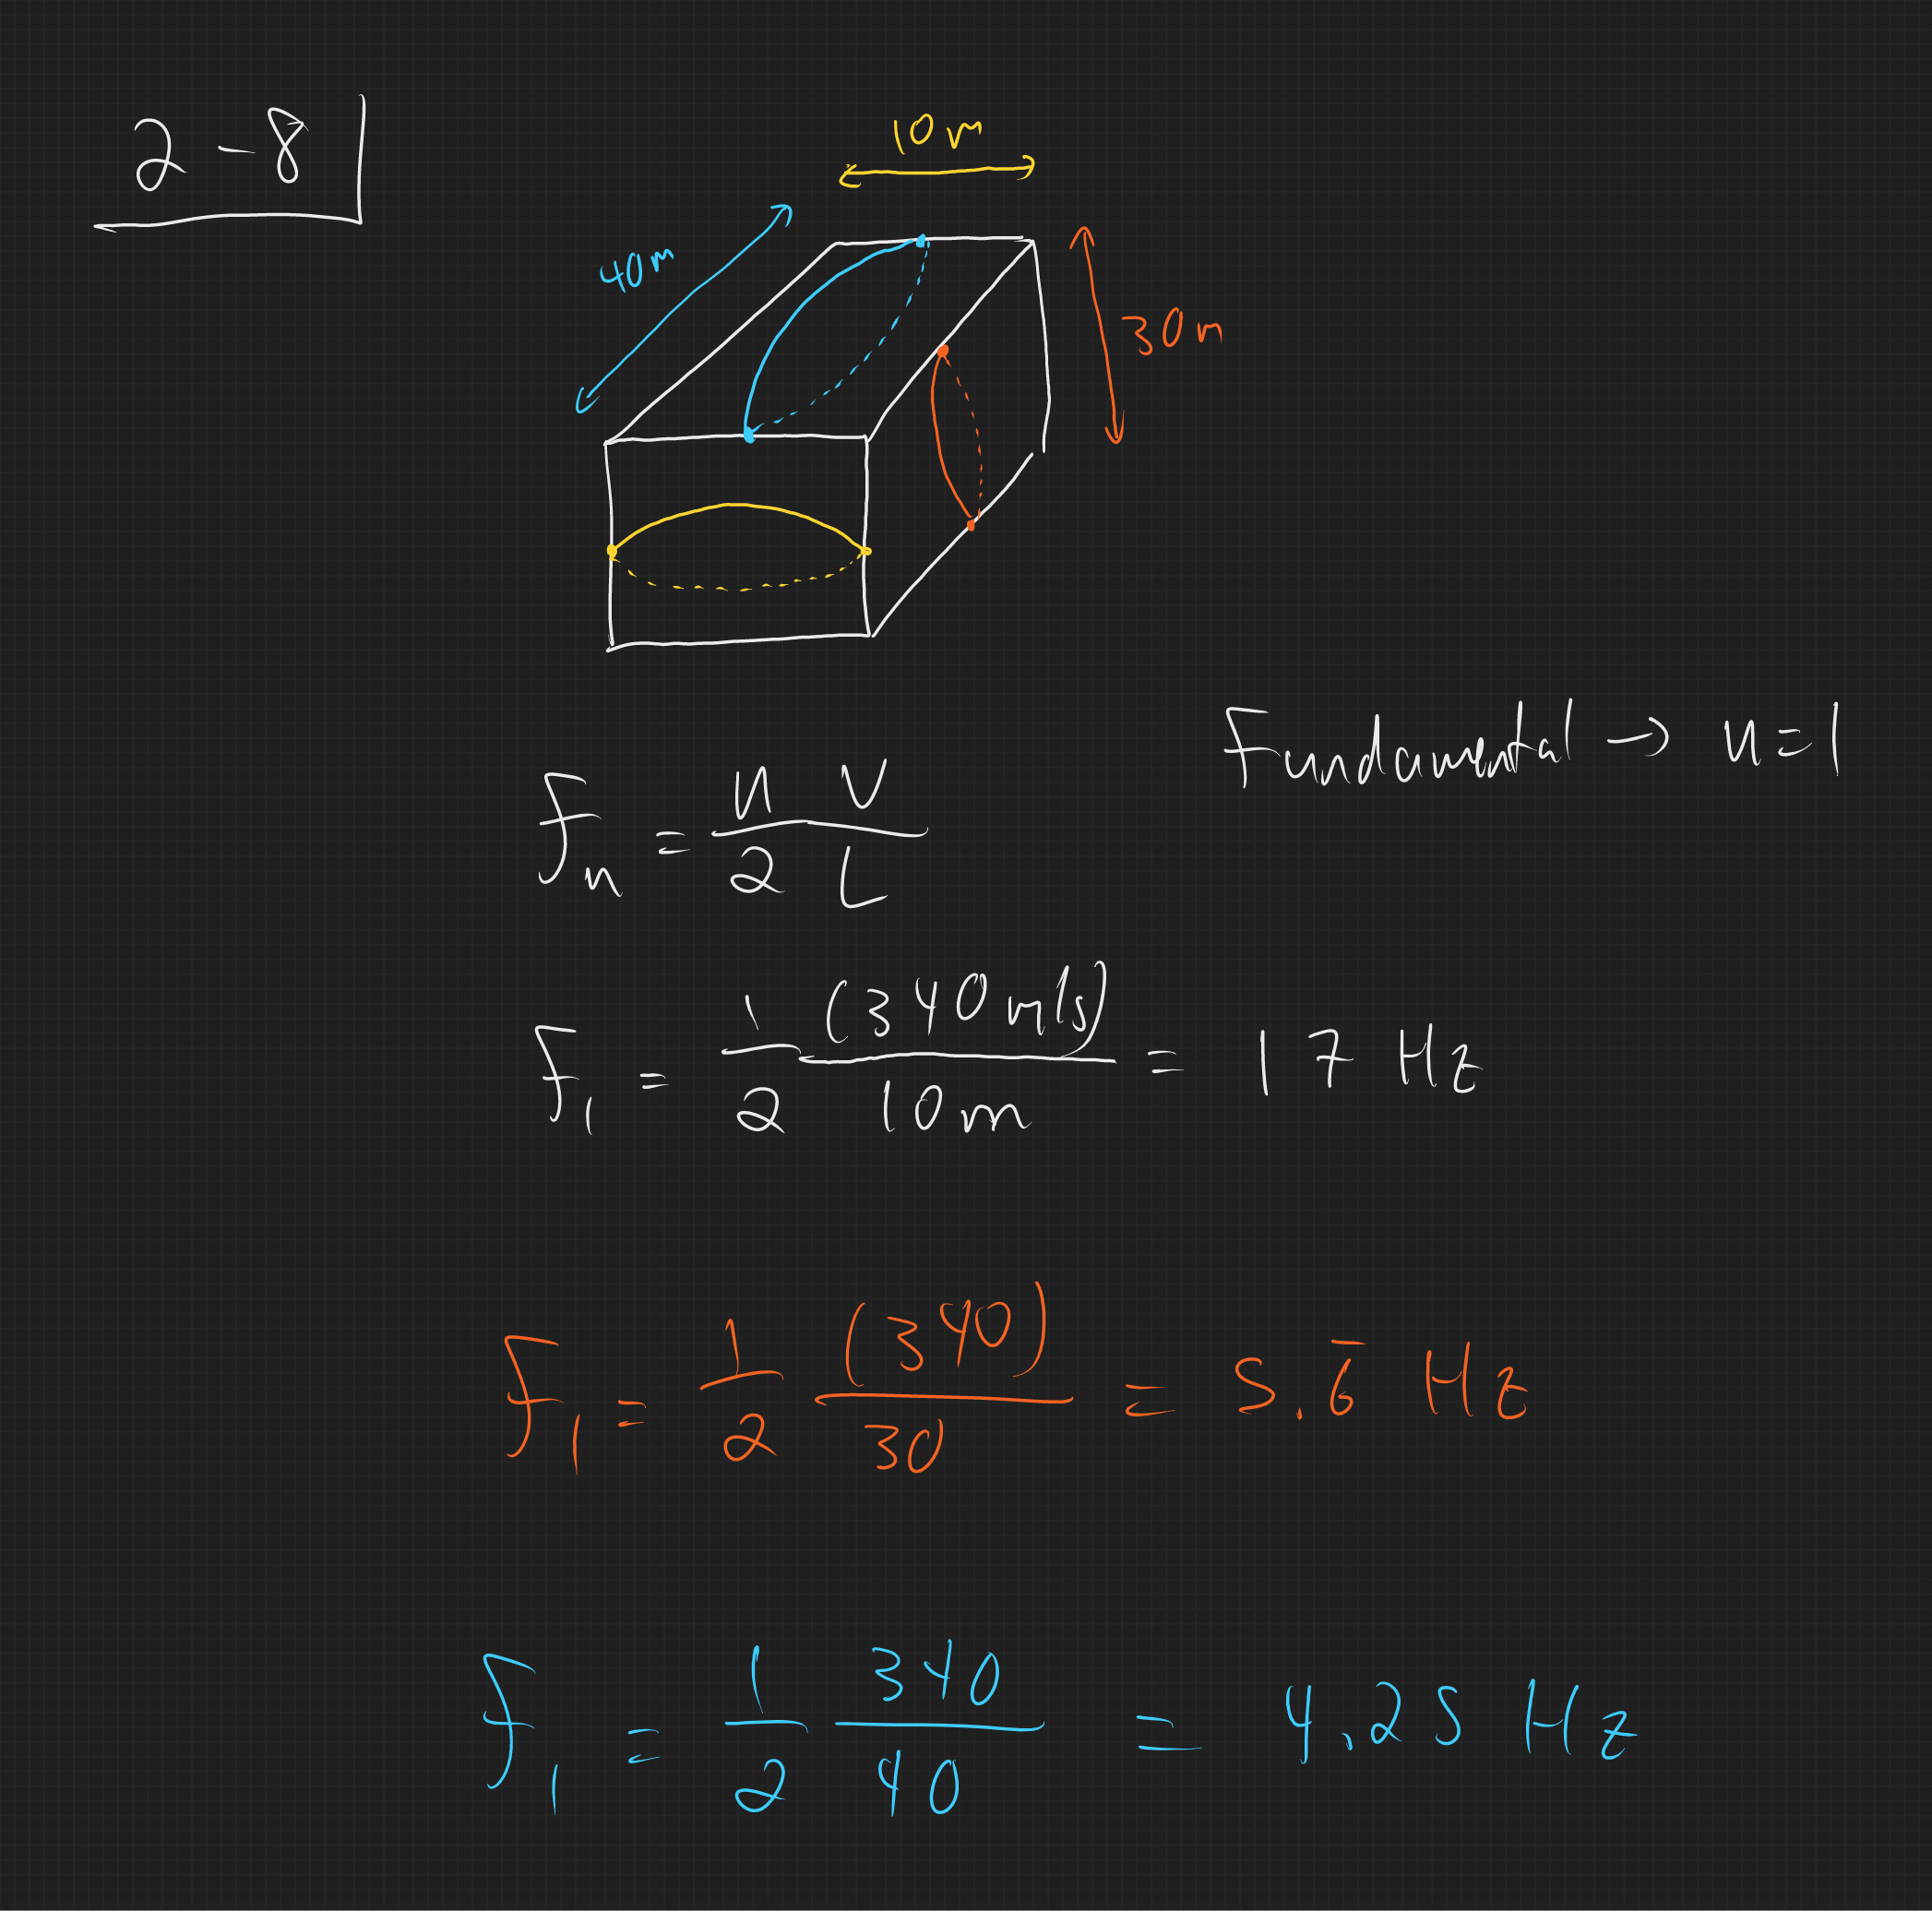 2-8
10m
40m
30m
Fundamental → n=1
fₙ = n/2 V/L
f₁ = 1/2 (340m/s)/10m = 17 Hz
f₁ = 1/2 (340)/30 = 5.6̅ Hz
f₁ = 1/2 340/40 = 4.25 Hz